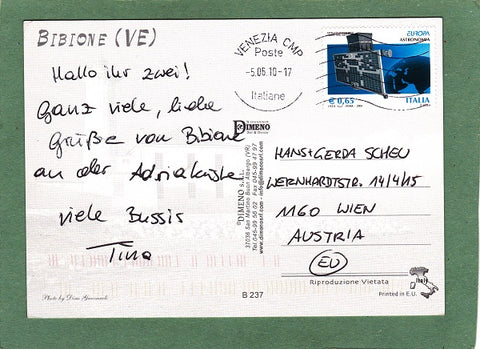 BIBIONE (VE)
Hallo ihr zwei!
Ganz viele, liebe
Grüße von Bibione
an der Adriaküste
viele Bussis
Tina
VENEZIA CMP
Poste
-5.06.10-17
Italiane
EUROPA
ASTRONOMIA
€ 0,65
ITALIA
DIMENO
DIMENO s.r.l.
37036 San Martino Buon Albergo (VR)
www.dimenosrl.com
HANS+GERDA SCHEU
WERNHARDTSTR. 14/4/15
1160 WIEN
AUSTRIA
EU
Riproduzione Vietata
Printed in E.U.
Photo by Dino Giacomuli
B 237